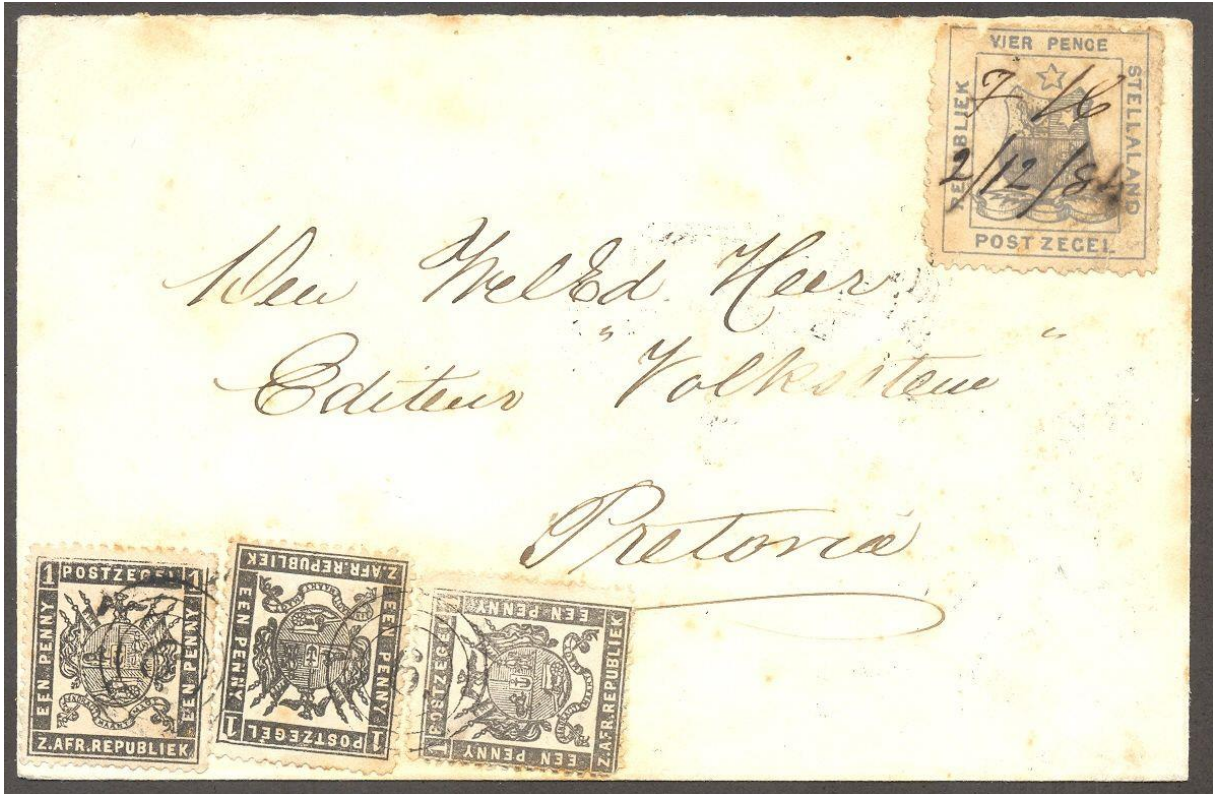 VIER PENCE
REPUBLIEK
STELLALAND
POSTZEGEL
2/12/84
Den WelEd Heer
Editeur "Volksstem"
Pretoria
1 POSTZEGEL 1
EEN PENNY
EEN PENNY
Z.AFR.REPUBLIEK
Z.AFR.REPUBLIEK
EEN PENNY
EEN PENNY
1 POSTZEGEL 1
1 POSTZEGEL
EEN PENNY
EEN PENNY
Z.AFR.REPUBLIEK